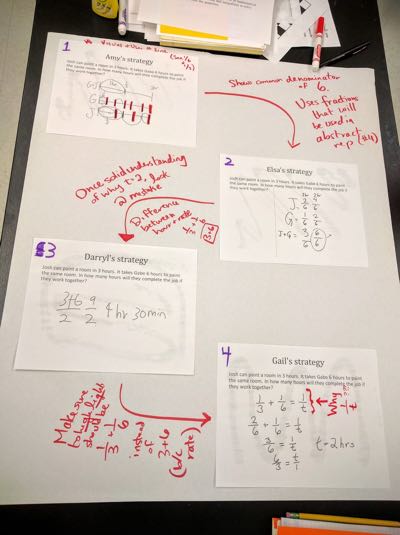 1
Amy's strategy
Josh can paint a room in 3 hours. It takes Gabe 6 hours to paint
the same room. In how many hours will they complete the job if
they work together?
G
J
Shows common denominator
of 6.
Uses fractions
that will
be used in
abstract
rep (#4)
2
Elsa's strategy
Josh can paint a room in 3 hours. It takes Gabe 6 hours to paint
the same room. In how many hours will they complete the job if
they work together?
J = 2/6 4/6
G = 1/6 2/6
J+G = 3/6 6/6
Once solid understanding
of why t=2, look
@ mistake
Difference
between
hour & rate
3+6
3
Darryl's strategy
Josh can paint a room in 3 hours. It takes Gabe 6 hours to paint
the same room. In how many hours will they complete the job if
they work together?
3+6/2 9/2 4 hr 30 min
Make sure
to highlight
should be
1/3 + 1/6
instead
of
3+6
(b/c
rate)
4
Gail's strategy
Josh can paint a room in 3 hours. It takes Gabe 6 hours to paint
the same room. In how many hours will they complete the job if
they work together?
1/3 + 1/6 = 1/t
Why 1/t ???
2/6 + 1/6 = 1/t
3/6 = 1/t t=2 hrs
6/3 = t/1